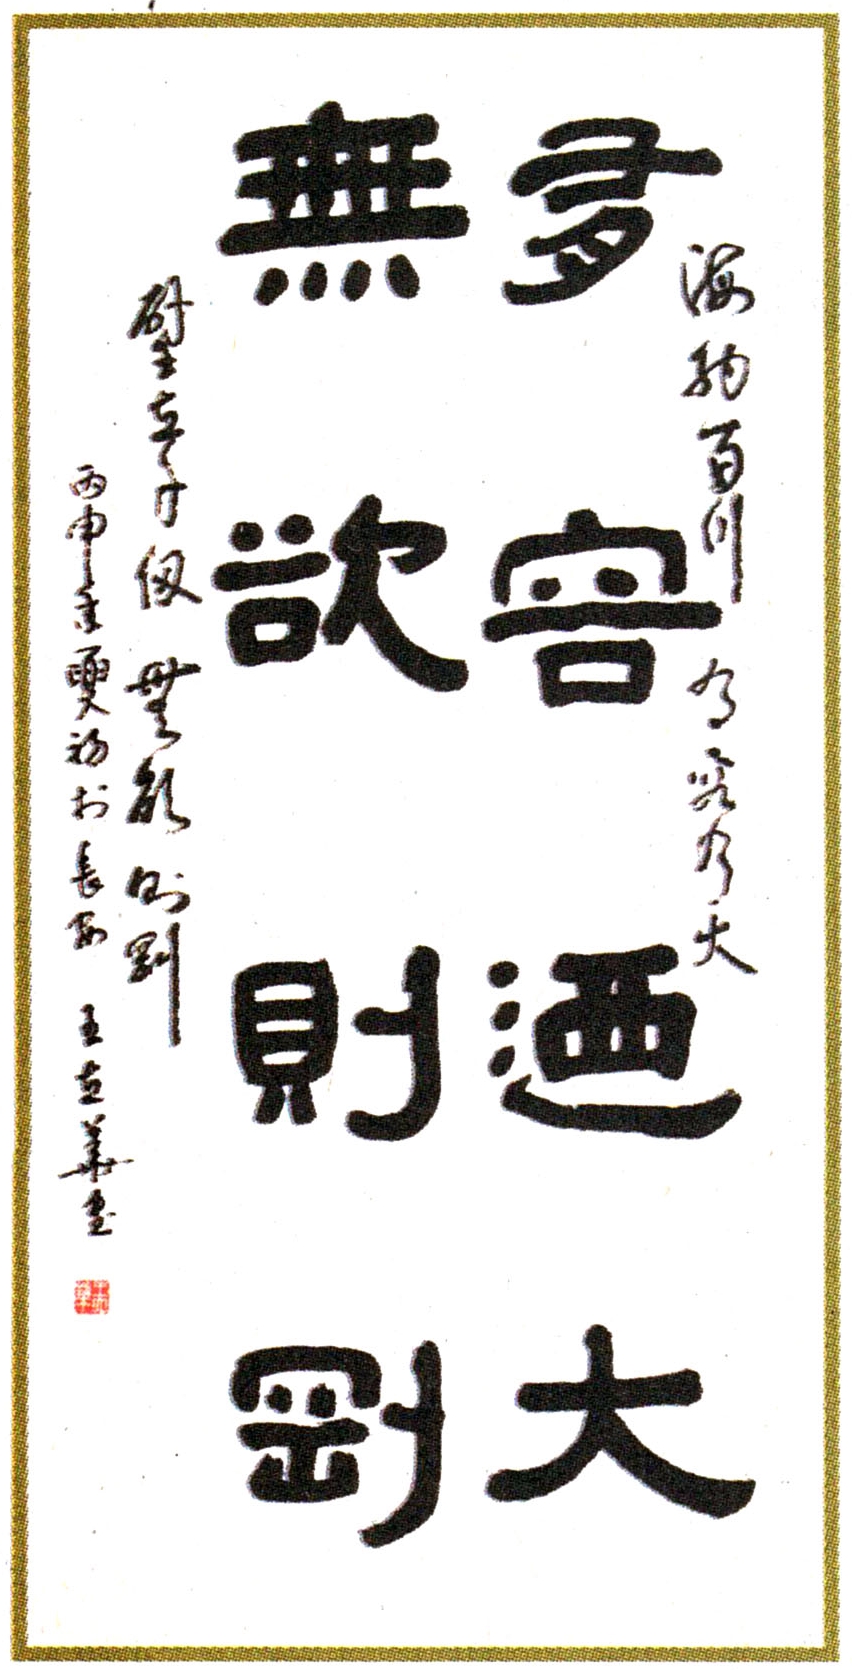 海納百川 有容乃大
有容迺大
無欲則剛
壁立千仞 無欲則剛
丙申年夏初於長安 王立華書